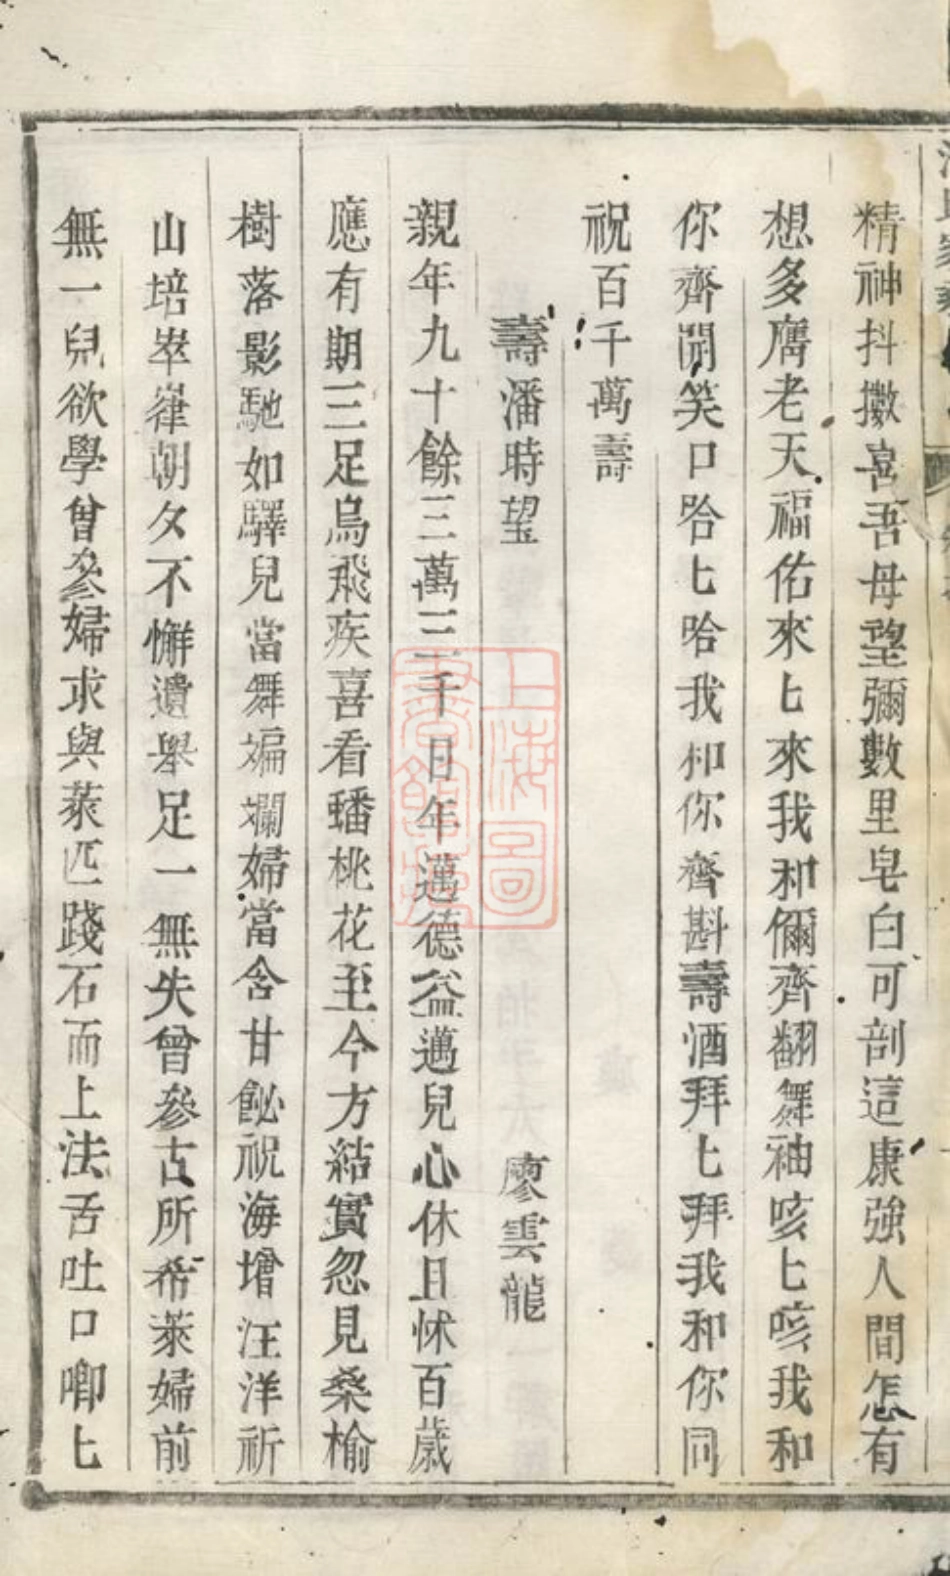 精神抖擻喜吾母望彌數里皂白可剖這康強人間怎有
想多膺老天福佑來匕來我和儞齊翻舞袖咳匕咳我和
你齊開笑口哈匕哈我和你齊斟壽酒拜匕拜我和你同
祝百千萬壽
壽潘時望 廖雲龍
親年九十餘三萬三千日年邁德益邁兒心休且怵百歲
應有期三足烏飛疾喜看蟠桃花至今方結實忽見桑榆
樹落影馳如驛兒當舞斒斕婦當含甘飶祝海增汪洋祈
山培崒嵂朝夕不懈遺舉足一無失曾參古所希萊婦前
無一兒欲學曾參婦求與萊匹踐石而上法舌吐口唧匕
上海圖書館藏